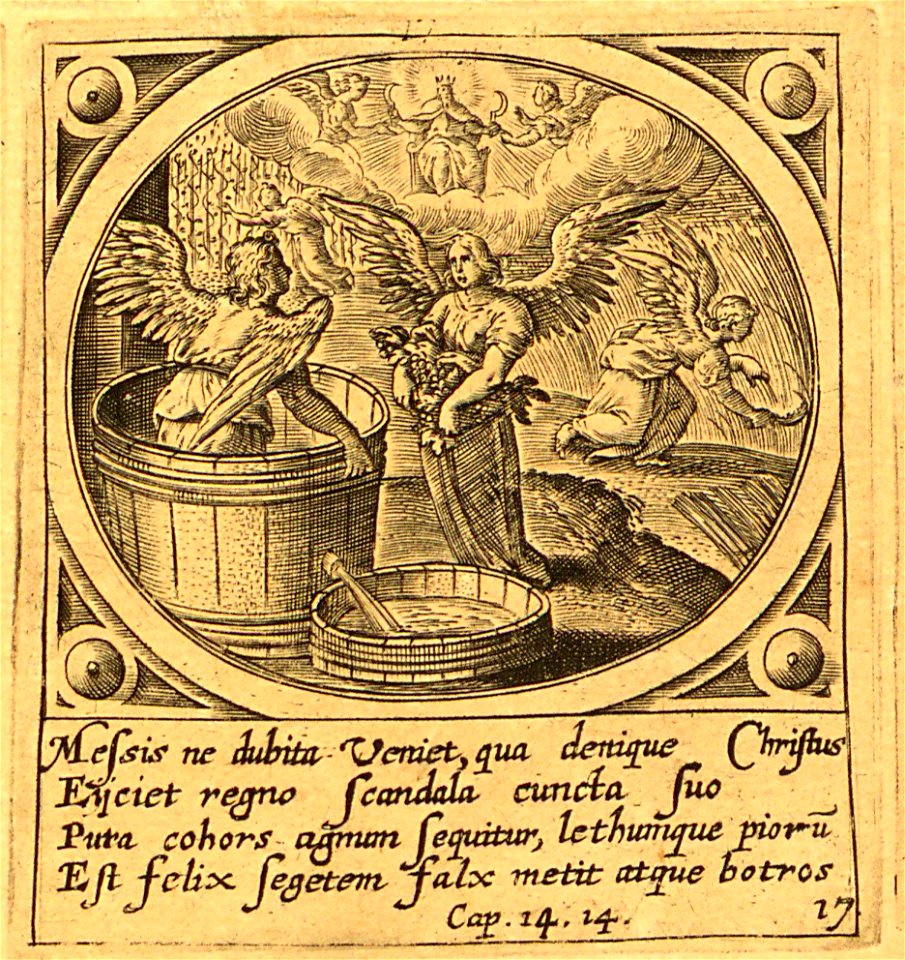 Meſsis ne dubita Veniet, qua denique Chriſtus
Eijciet regno ſcandala cuncta ſuo
Pura cohors agnum ſequitur, lethumque piorū
Eſt felix ſegetem falx metit atque botros
Cap. 14. 14.
17